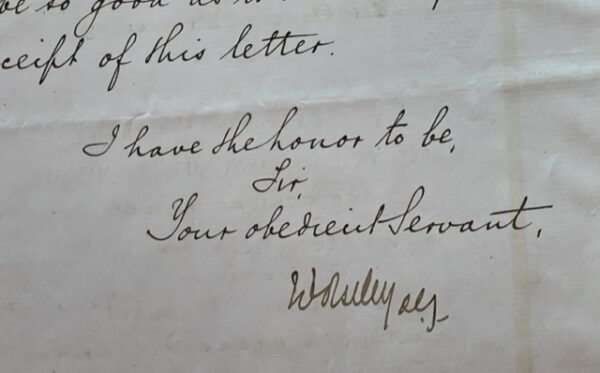 be so good as
ceipt of this letter.
I have the honor to be,
Sir,
Your obedient Servant,
Wolseley